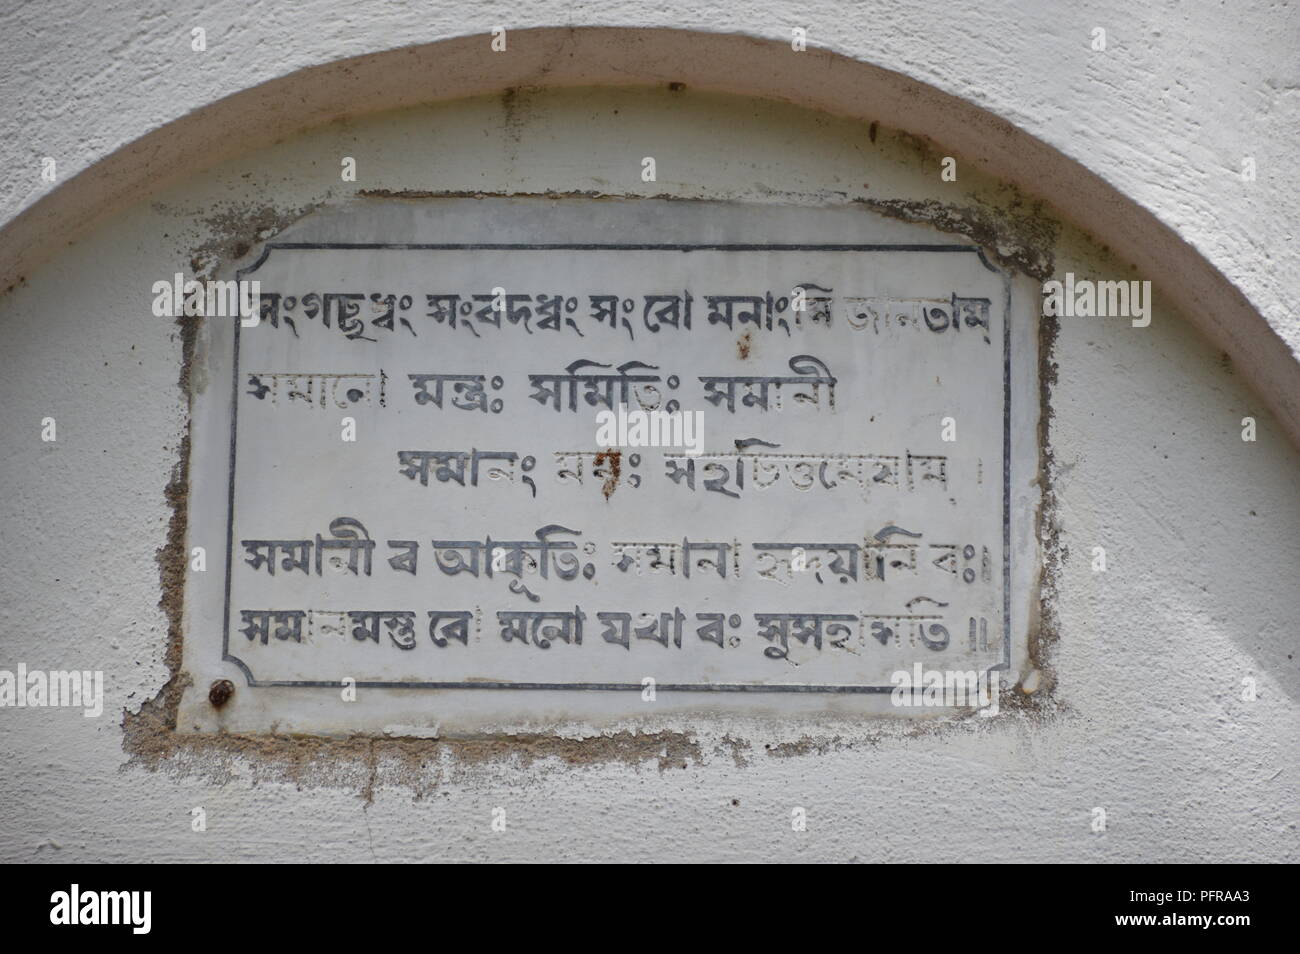 সংগচ্ছধ্বং সংবদধ্বং সং বো মনাংসি জানতাম্
সমানো মন্ত্রঃ সমিতিঃ সমানী
সমানং মনঃ সহচিত্তমেষাম্ ।
সমানী ব আকূতিঃ সমানা হৃদয়ানি বঃ।
সমানমস্তু বো মনো যথা বঃ সুসহাসতি ॥
alamy
alamy
alamy
alamy
alamy
alamy
Image ID: PFRAA3
www.alamy.com